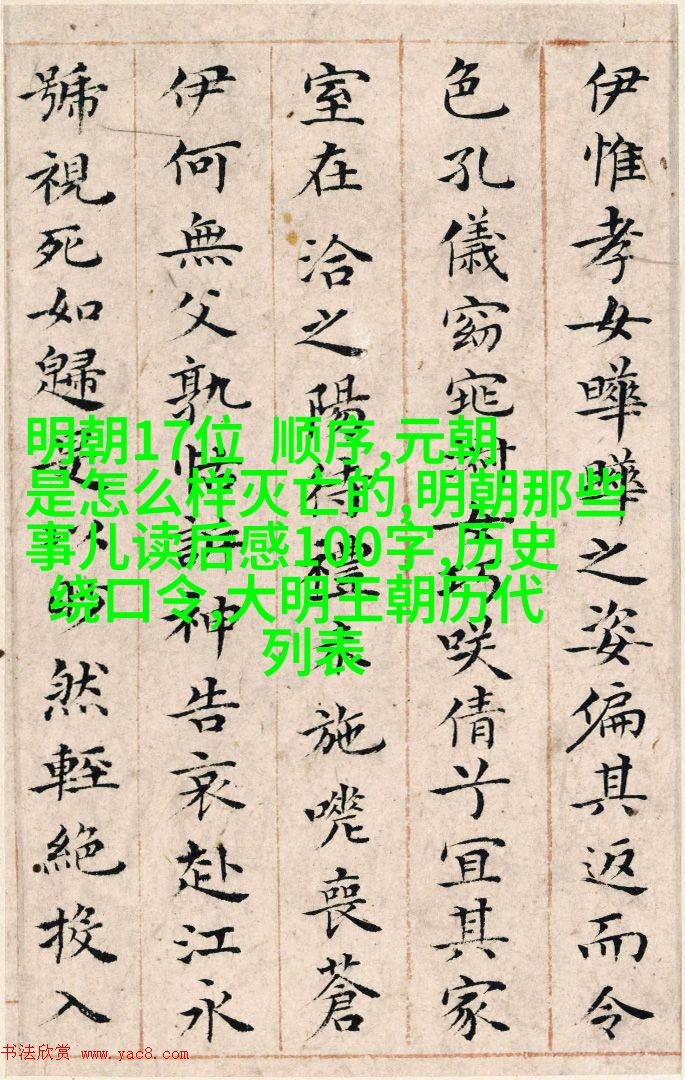 伊惟孝女曄曄之姿偏其返而令
色孔儀窈窕淑女巧咲倩兮宜其家
室在洽之陽待禮未施嗟喪蒼
伊何無父孰怙訴神告哀赴江永
號視死如歸是以眇然輕絕投入
明朝17位 顺序,元朝
是怎么样灭亡的,明朝那些
事儿读后感100字,历史
绕口令,大明王朝历代
列表
书法欣赏 www.yac8.com